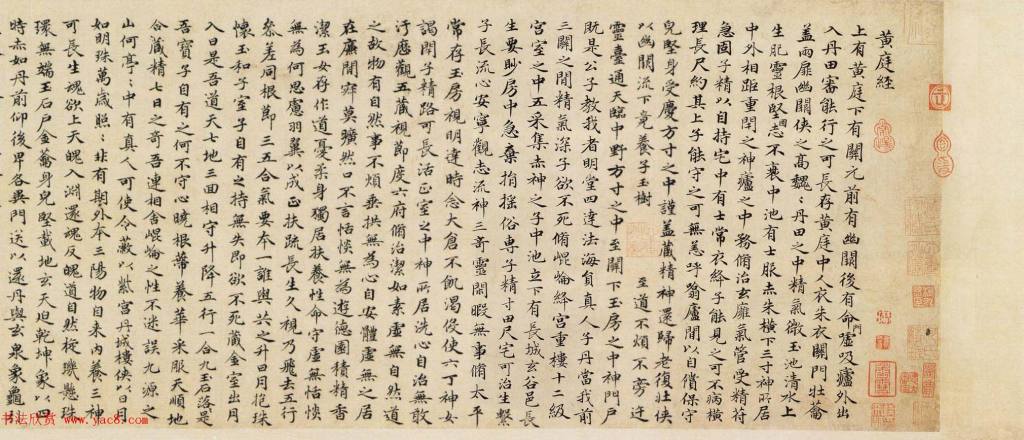 黄庭経
上有黄庭下有關元前有幽關後有命門嘘吸廬外出
入丹田審能行之可長存黄庭中人衣朱衣關門壯籥
盖兩扉幽關俠之高魏〻丹田之中精氣微玉池清水上
生肥靈根堅志不衰中池有士服赤朱横下三寸神所居
中外相距重閇之神廬之中務脩治玄廱氣管受精苻
急固子精以自持宅中有士常衣絳子能見之可不病横
理長尺約其上子能守之可無恙呼翕廬間以自償保守
皃堅身受慶方寸之中謹盖藏精神還歸老復壯俠
以幽關流下竟養子玉樹 至道不煩不旁迕
靈臺通天臨中野方寸之中至關下玉房之中神門戶
既是公子教我者明堂四達法海負真人子丹當我前
三關之間精氣深子欲不死脩崐崘絳宮重樓十二級
宮室之中五采集赤神之子中池立下有長城玄谷邑長
生要眇房中急棄捐摇俗専子精寸田尺宅可治生繫
子長流心安寧觀志流神三奇靈閒暇無事脩太平
常存玉房視明達時念大倉不飢渴伇使六丁神女
謁閇子精路可長活正室之中神所居洗心自治無敢
汙歴觀五藏視節度六府脩治潔如素虚無自然道
之故物有自然事不煩垂拱無為心自安體虚無之居
在廉間寂莫曠然口不言恬惔無為遊德園積精香
潔玉女存作道憂柔身獨居扶養性命守虚無恬惔
無為何思慮羽翼以成正扶疏長生久視乃飛去五行
叅差同根節三五合氣要本一誰與共之升日月抱珠
懷玉和子室子自有之持無失即欲不死藏金室出月
入日是吾道天七地三囬相守升降五行一合九玉石落是
吾寳子自有之何不守心曉根蔕養華采服天順地
合藏精七日之奇吾連相舎崐崘之性不迷誤九源之
山何亭〻中有真人可使令蔽以紫宮丹城樓俠以日月
如明珠萬歲照〻非有期外本三陽物自来内養三神
可長生魂欲上天魄入淵還魂反魄道自然㫌璣懸珠
環無端玉石戶金籥身皃堅載地玄天迫乾坤象以四
時赤如丹前仰後卑各異門送以還丹與玄泉象龜
书法欣赏 www.yac8.com